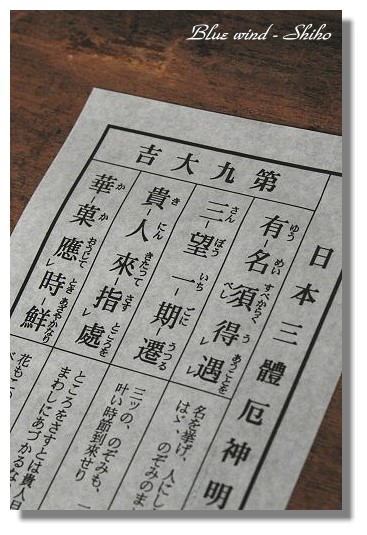 Blue wind - Shiho
日本三體厄神明
第九大吉
有名須得遇
ゆうめいすべからくべしうあうことを
三望一期遷
さんぼういちごにうつる
貴人來指處
きにんきたつてさすところを
華菓應時鮮
かかおうじてときあざやかなり
名を挙げ、人にし
はゞ、のぞみのま
三ッの、のぞみも、一
叶い時節到來せり
ところをさすとは貴人目
まわしにあづかるな
花もこ